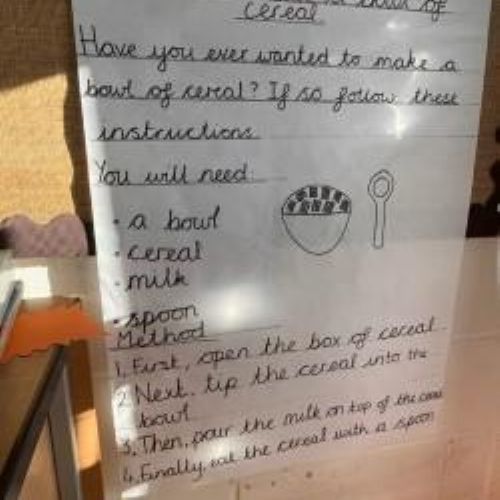 bowl of
cereal
Have you ever wanted to make a
bowl of cereal? If so follow these
instructions
You will need:
• a bowl
• cereal
• milk
• spoon
Method
1. First, open the box of cereal
2. Next, tip the cereal into the
bowl
3. Then, pour the milk on top of the cereal
4. Finally, eat the cereal with a spoon